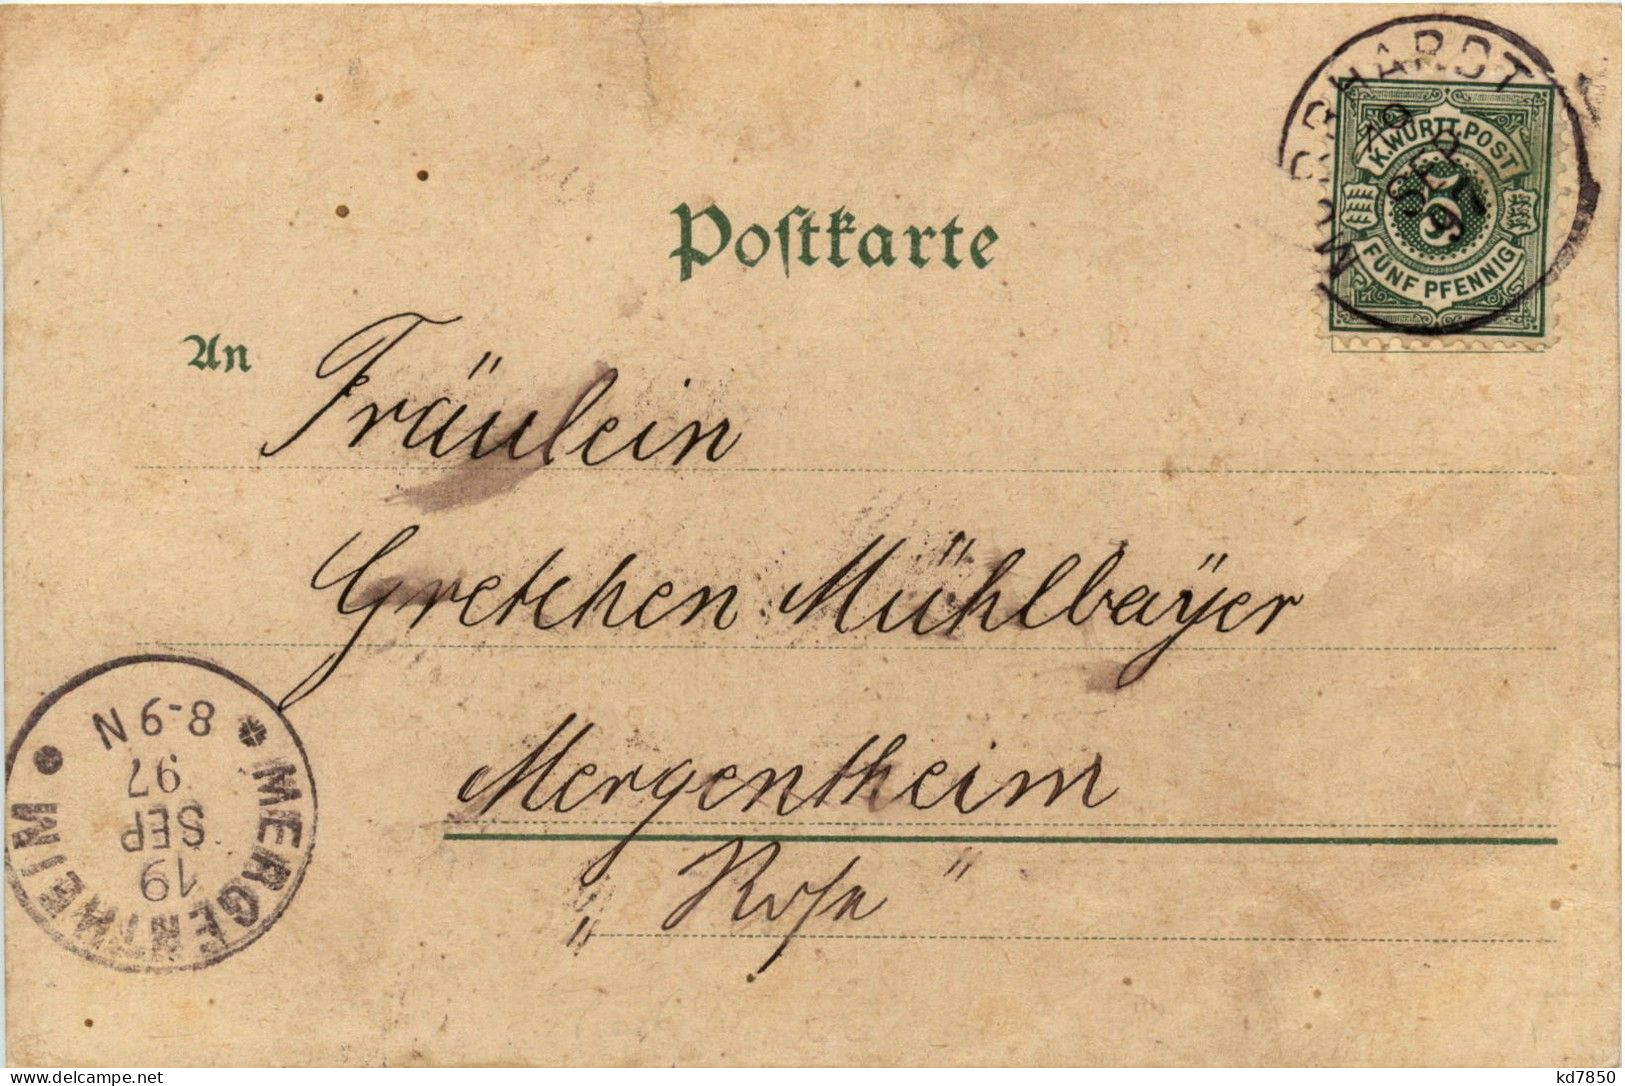 Postkarte
K.WÜRTT.POST
5
FÜNF PFENNIG
MURRHARDT
19
SEP
97
An
Fräulein
Gretchen Mühlbaÿer
Mergentheim
„Rose"
MERGENTHEIM
19
SEP
97
8-9N
delcampe.net
kd7850